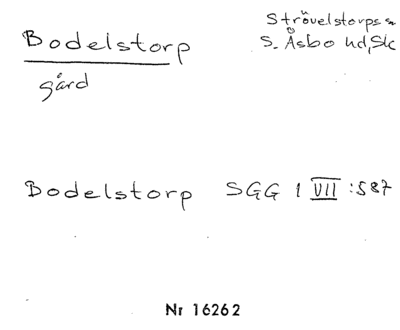 Bodelstorp
Strövelstorps sn
S. Åsbo hd, Sk
gård
Bodelstorp SGG 1 VII :587
Nr 16262